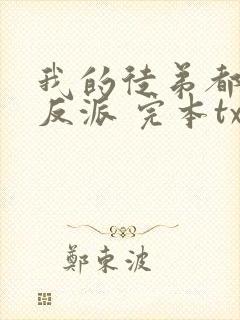 我的徒弟都
反派 完本tx
鄭東波